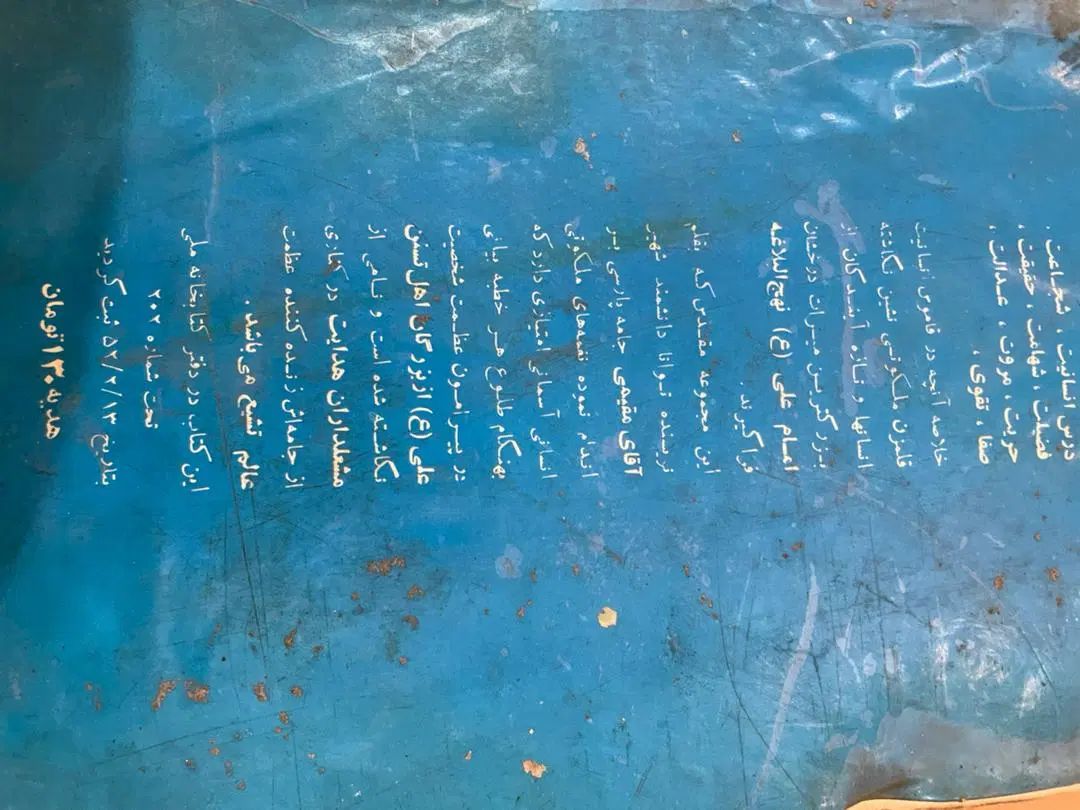 درس انسانیت ، شجاعت ،
فضلت ، شهامت ، حقیقت ،
حریت ، مروت ، عدالت ،
صفا ، تقوی ،
خلاصه آنچه در قاموس انسانیت
قلمزن ملکوتی نشین نگاشته
انسانها و تازه آیندگان از
بزرگترین میراث درخشان
امام علی (ع) نهج‌البلاغه
فرا گیرند .
این مجموعه مقدس که بقلم
نویسنده توانا دانشمند شهیر
آقای مقیمی جامه پارسی بر
اندام نموده نغمه‌های ملکوتی
انسانی آسمانی امتیازی دارد که
بهنگام طلوع هر خطبه بیانی
در پیرامون عظمت شخصیت
علی (ع) از بزرگان اهل تسنن
نگاشته شده است و نامی از
مشعلداران هدایت در
از جامه‌اش زنده کننده عظمت
عالم تشیع می‌باشد .
این کتاب در دفتر کتابخانه ملی
تحت شماره ۲۰۲
بتاریخ ۵۲/۲/۱۳ ثبت گردید
هدیه ۱۳۰ تومان